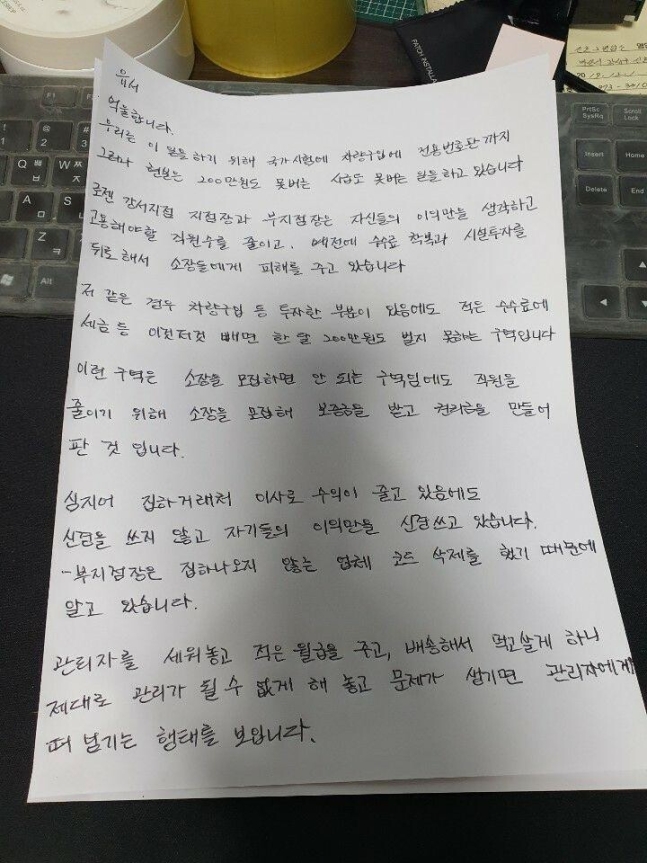 유서
억울합니다.
우리는 이 일을 하기 위해 국가시험에 차량구입에 전용번호판까지
그러나 현실은 200만원도 못버는 시급도 못버는 일을 하고 있습니다
로젠 강서지점 지점장과 부지점장은 자신들의 이익만을 생각하고
고용해야할 직원수를 줄이고. 예전에 수수료 착복과 시설투자를
뒤로해서 소장들에게 피해를 주고 있습니다
저 같은 경우 차량구입 등 투자한 부분이 있음에도 적은 수수료에
세금 등 이것저것 빼면 한 달 200만원도 벌지 못하는 구역입니다
이런 구역은 소장을 모집하면 안 되는 구역임에도 직원을
줄이기 위해 소장을 모집해 보증금을 받고 권리금을 만들어
판 것 입니다.
심지어 집하거래처 이사로 수익이 줄고 있음에도
신경을 쓰지 않고 자기들의 이익만을 신경쓰고 있습니다.
-부지점장은 집하나오지 않는 업체 코드 삭제를 했기 때문에
알고 있습니다.
관리자를 세워놓고 적은 월급을 주고, 배송해서 먹고살게 하니
제대로 관리가 될 수 없게 해 놓고 문제가 생기면 관리자에게
떠 넘기는 행태를 보입니다.
PATCH INSTALLA
F1
F2
PrtSc
SysRq
Scroll
Lock
Insert
Home
Delete
End
Alt